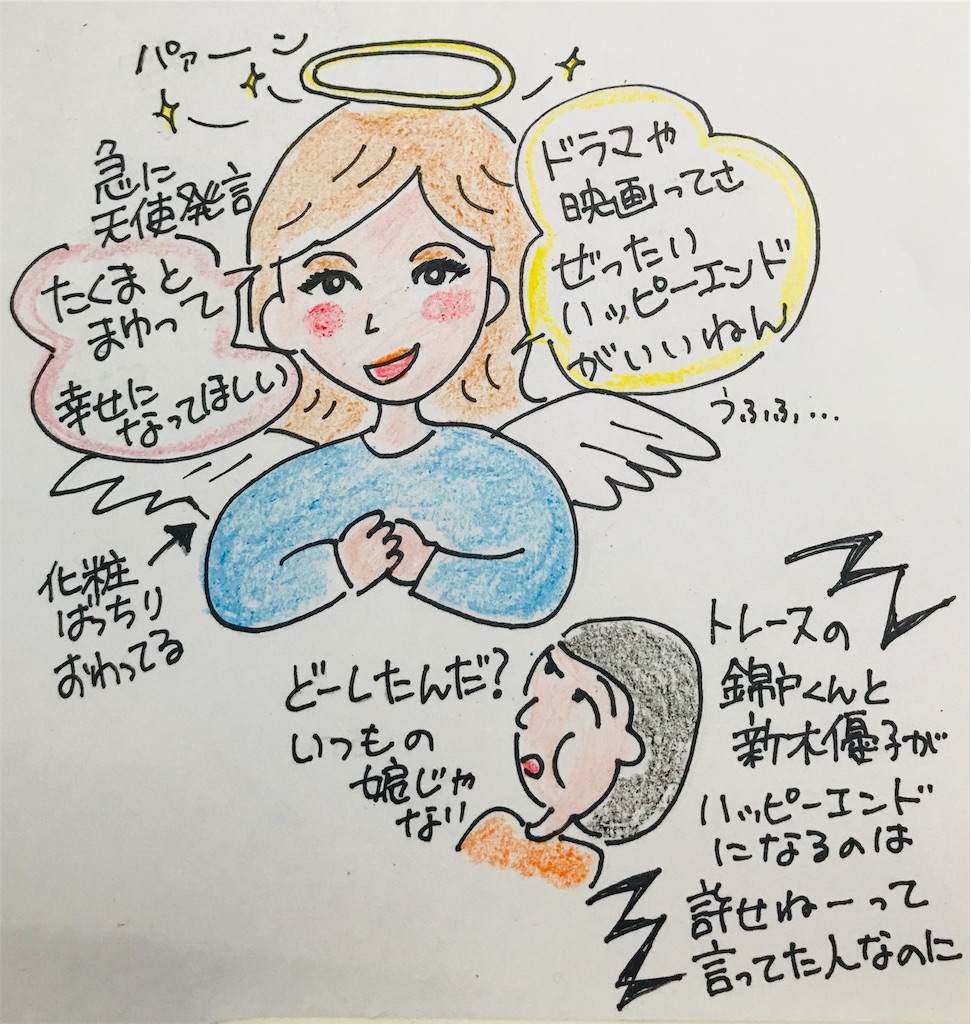 パァーン
急に
天使発言
ドラマや
映画ってさ
ぜったい
ハッピーエンド
がいいねん
たくまと
まゆって
幸せに
なってほしい
うふふ…
化粧
ばっちり
おわってる
どーしたんだ?
いつもの
嫁じゃ
ない
トレースの
錦戸くんと
新木優子が
ハッピーエンド
になるのは
許せねーって
言ってた人なのに